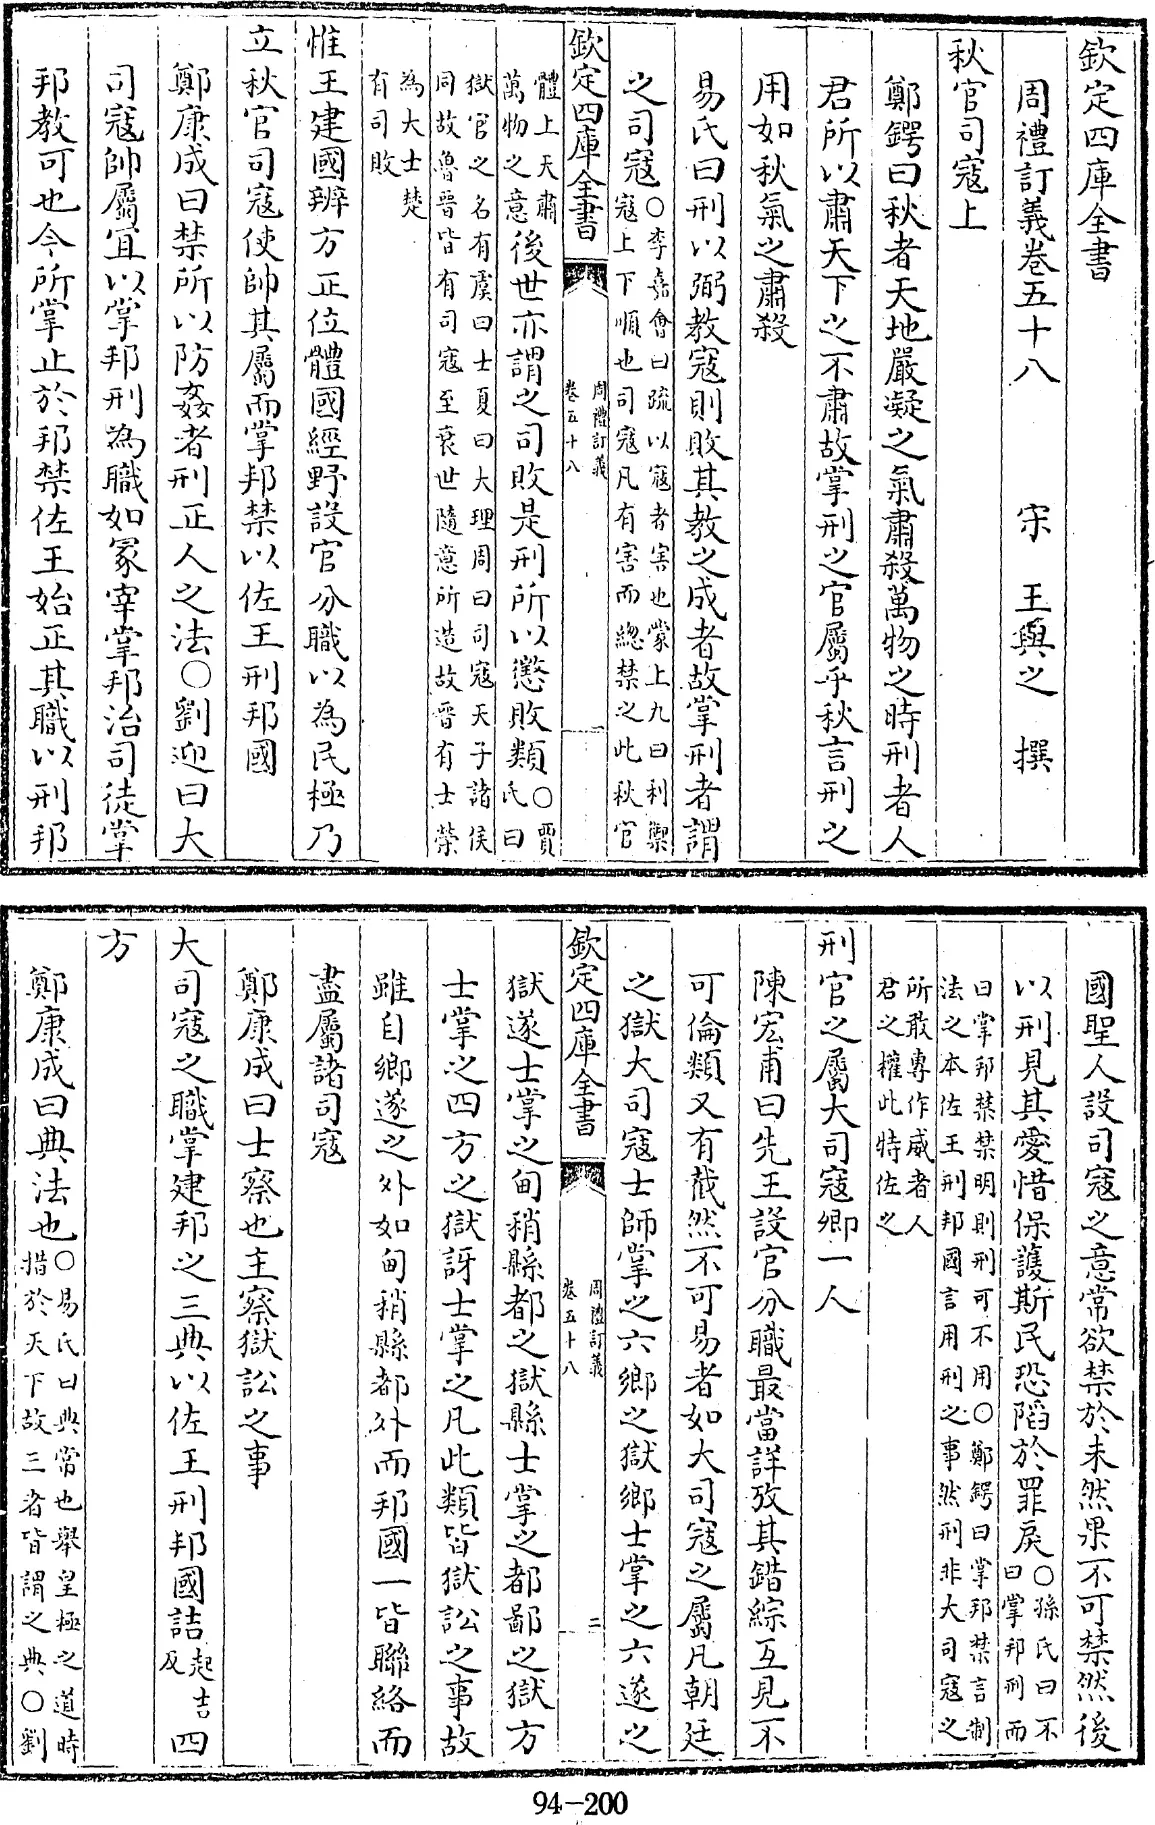 欽定四庫全書
周禮訂義卷五十八 宋 王與之 撰
秋官司寇上
鄭鍔曰秋者天地嚴凝之氣肅殺萬物之時刑者人
君所以肅天下之不肅故掌刑之官屬乎秋言刑之
用如秋氣之肅殺
易氏曰刑以弼教寇則敗其教之成者故掌刑者謂
之司寇○李嘉會曰疏以寇者害也蒙上九曰利禦
寇上下順也司寇凡有害而總禁之此秋官
欽定四庫全書
周禮訂義
卷五十八
一
體上天肅
萬物之意後世亦謂之司敗是刑所以懲敗類○賈
氏曰
獄官之名有虞曰士夏曰大理周曰司寇天子諸侯
同故魯晉皆有司寇至衰世隨意所造故晉有士榮
為大士楚
有司敗
惟王建國辨方正位體國經野設官分職以為民極乃
立秋官司寇使帥其屬而掌邦禁以佐王刑邦國
鄭康成曰禁所以防姦者刑正人之法○劉迎曰大
司寇帥屬宜以掌邦刑為職如冢宰掌邦治司徒掌
邦教可也今所掌止於邦禁佐王始正其職以刑邦
國聖人設司寇之意常欲禁於未然果不可禁然後
以刑見其愛惜保護斯民恐陷於罪戾○孫氏曰不
曰掌邦刑而
曰掌邦禁禁明則刑可不用○鄭鍔曰掌邦禁言制
法之本佐王刑邦國言用刑之事然刑非大司寇之
所敢專作威者人
君之權此特佐之
刑官之屬大司寇卿一人
陳宏甫曰先王設官分職最當詳攷其錯綜互見不
可倫類又有截然不可易者如大司寇之屬凡朝廷
之獄大司寇士師掌之六鄉之獄鄉士掌之六遂之
欽定四庫全書
周禮訂義
卷五十八
二
獄遂士掌之甸稍縣都之獄縣士掌之都鄙之獄方
士掌之四方之獄訝士掌之凡此類皆獄訟之事故
雖自鄉遂之外如甸稍縣都外而邦國一皆聯絡而
盡屬諸司寇
鄭康成曰士察也主察獄訟之事
大司寇之職掌建邦之三典以佐王刑邦國詰起吉
反四
方
鄭康成曰典法也○易氏曰典常也舉皇極之道時
措於天下故三者皆謂之典○劉
94-200